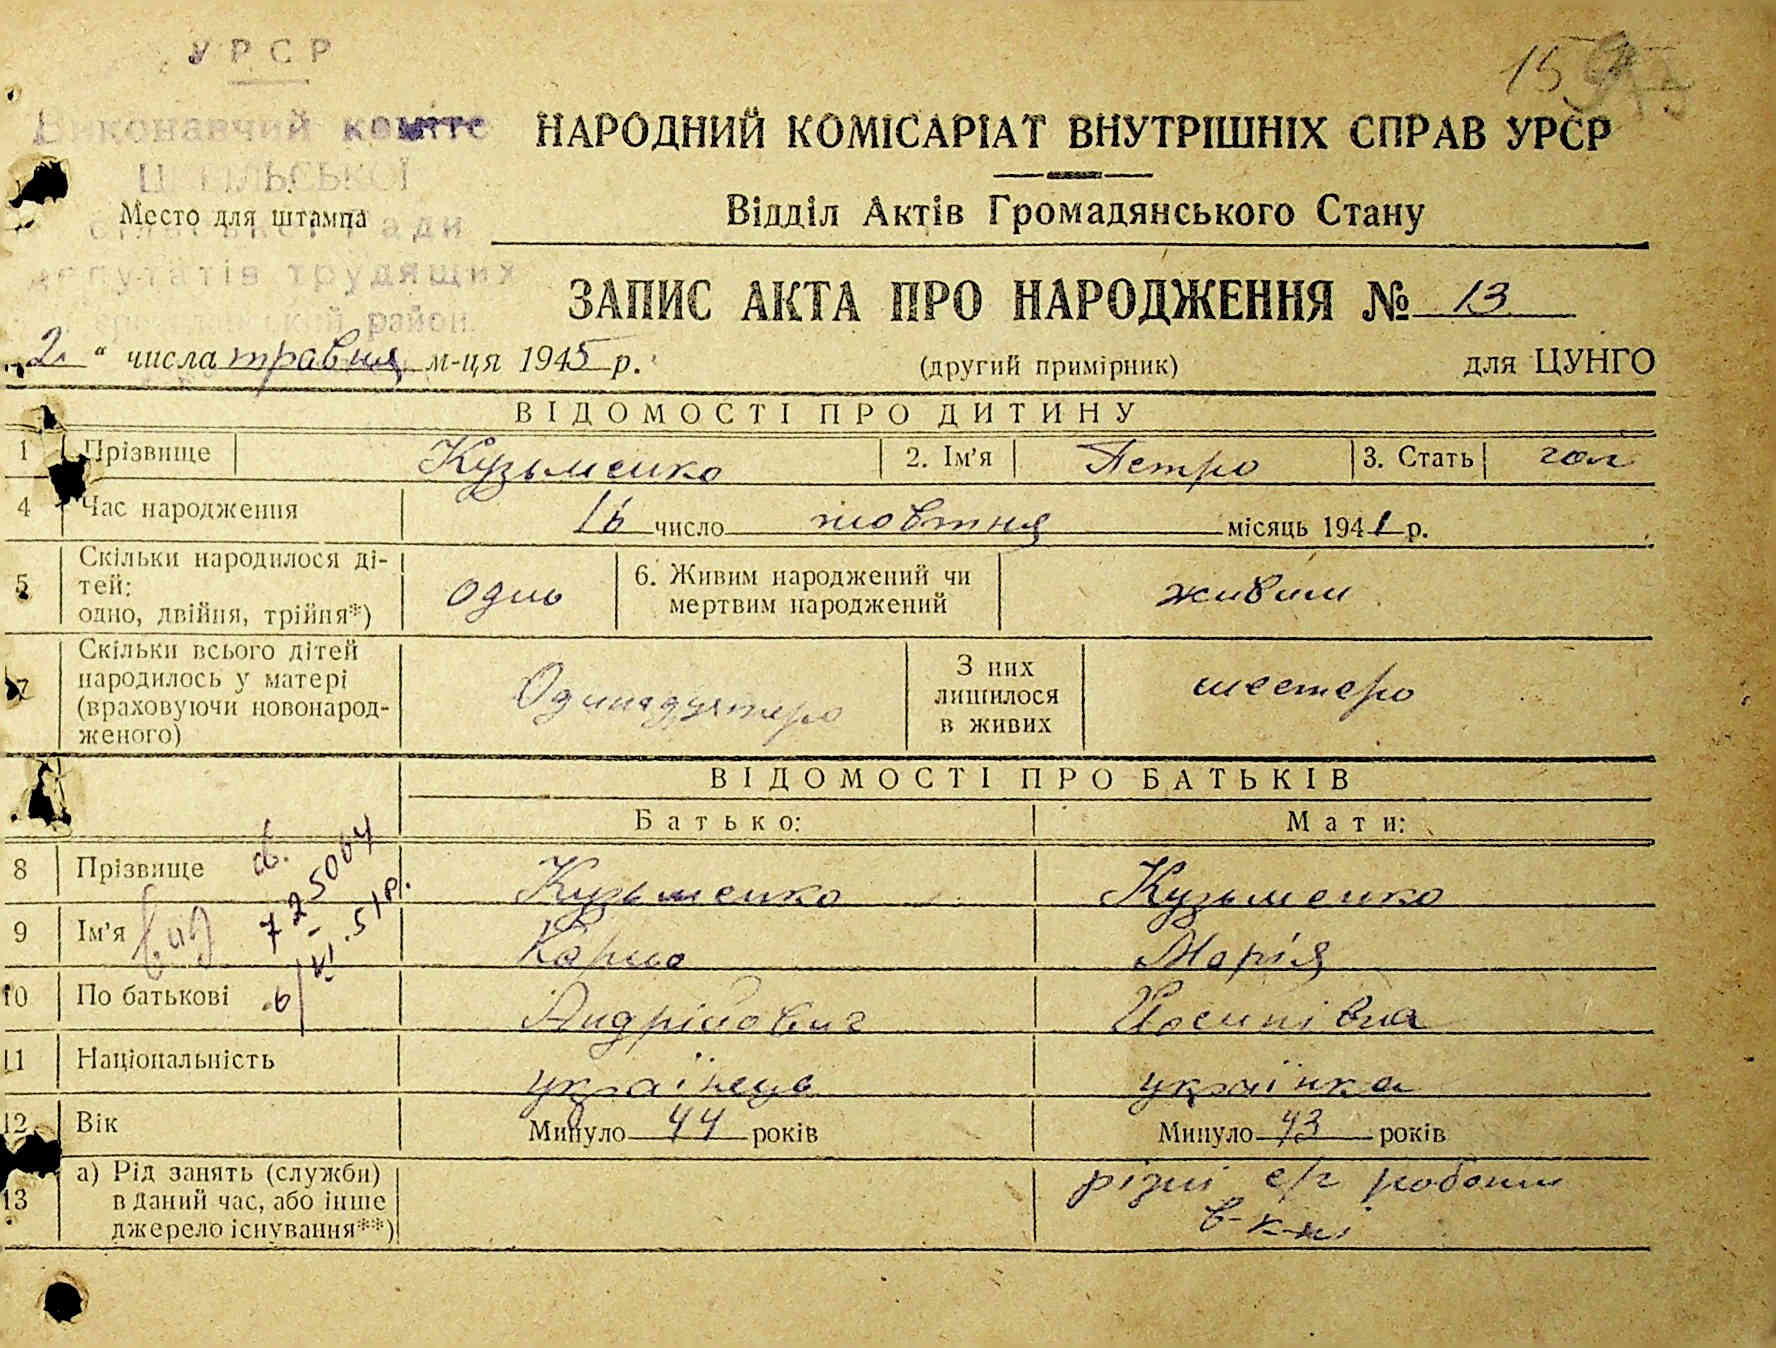 УРСР
Виконавчий коміте
Место для штампа
депутатів трудящих
район
15
НАРОДНИЙ КОМІСАРІАТ ВНУТРІШНІХ СПРАВ УРСР
Відділ Актів Громадянського Стану
ЗАПИС АКТА ПРО НАРОДЖЕННЯ № 13
„2“ числа травня м-ця 1945 р. (другий примірник) для ЦУНГО
ВІДОМОСТІ ПРО ДИТИНУ
1 Прізвище Кузьменко 2. Ім'я Петро 3. Стать чол
4 Час народження 16 число жовтня місяць 1941 р.
5 Скільки народилося ді-
тей:
одно, двійня, трійня*) одно 6. Живим народжений чи
мертвим народжений живим
7 Скільки всього дітей
народилось у матері
(враховуючи новонарод-
женого) Одинадцятеро З них
лишилося
в живих шестеро
ВІДОМОСТІ ПРО БАТЬКІВ
Батько: Мати:
8 Прізвище Кузьменко Кузьменко
9 Ім'я Карпо Марія
10 По батькові Андрійович Йосипівна
св.
725004
6/VI.51р.
11 Національність українець українка
12 Вік Минуло 44 років Минуло 43 років
13 а) Рід занять (служби)
в даний час, або інше
джерело існування**) різні с/г роботи